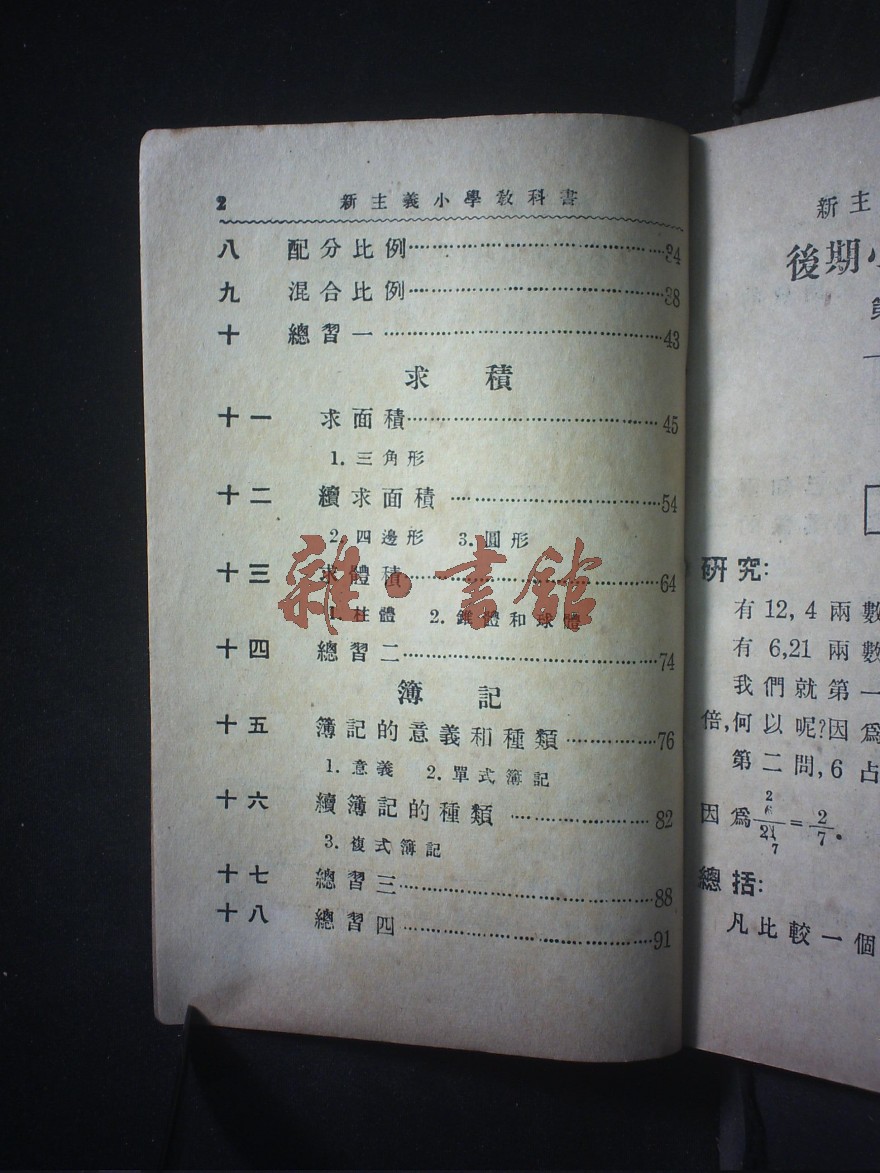 2 新主義小學教科書
八 配分比例 34
九 混合比例 38
十 總習一 43
求積
十一 求面積 45
1. 三角形
十二 續求面積 54
2. 四邊形 3. 圓形
十三 求體積 64
1. 柱體 2. 錐體和球體
十四 總習二 74
簿記
十五 簿記的意義和種類 76
1. 意義 2. 單式簿記
十六 續簿記的種類 82
3. 複式簿記
十七 總習三 88
十八 總習四 91
雜·書館
新主
後期小
研究:
有 12, 4 兩數
有 6,21 兩數
我們就第一
倍,何以呢?因爲
第二問, 6 占
因爲 6/21 = 2/7 。
2
7
總括:
凡比較一個